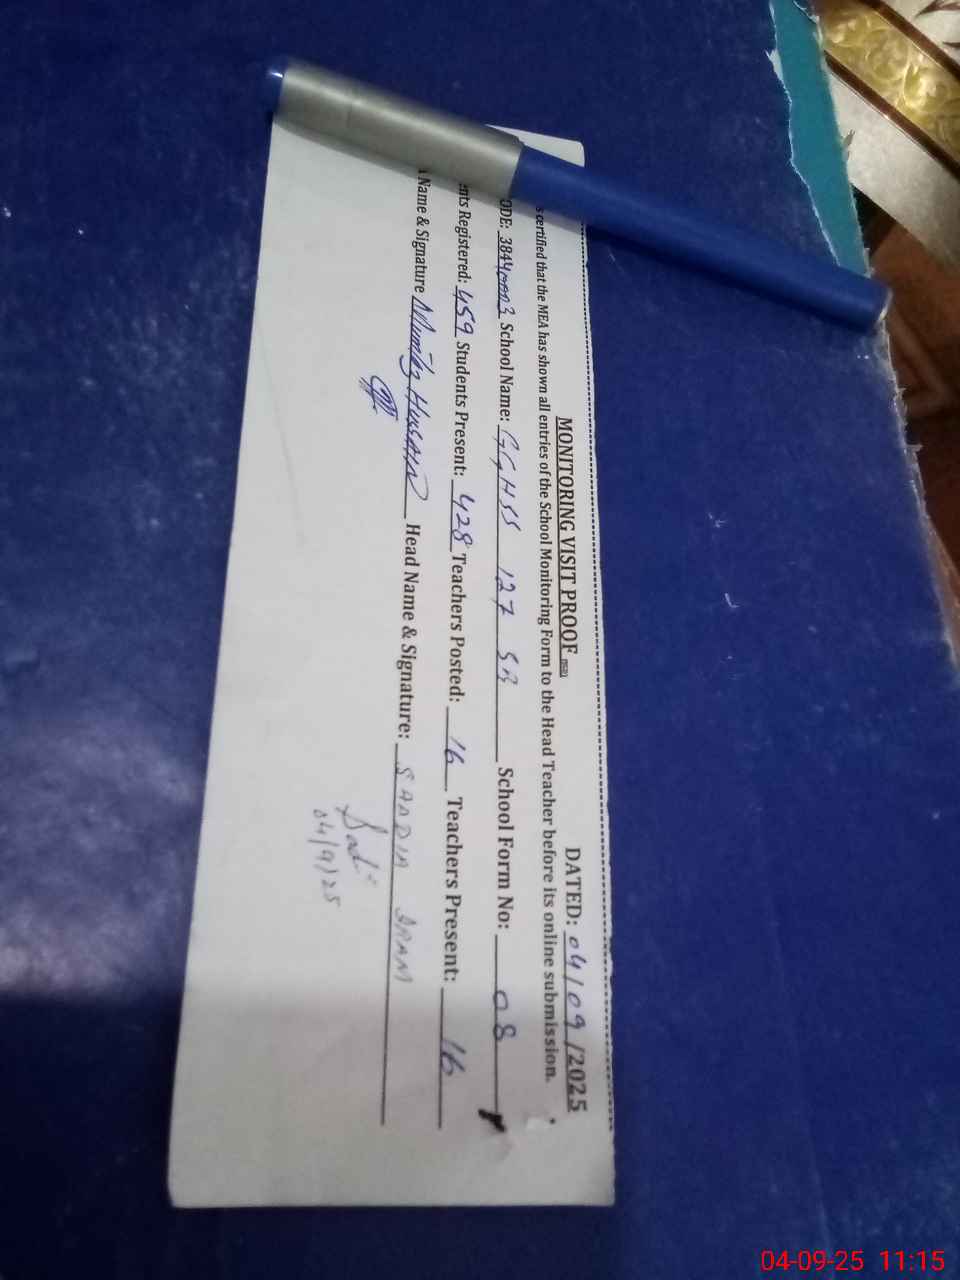 MONITORING VISIT PROOF
DATED: 04/09/2025
s certified that the MEA has shown all entries of the School Monitoring Form to the Head Teacher before its online submission.
ODE: 38440003 School Name: GGHSS 127 SB School Form No: 08
ents Registered: 459 Students Present: 428 Teachers Posted: 16 Teachers Present: 16
Name & Signature Mumtaz Hussain Head Name & Signature: SADDIA
04/9/25
04-09-25 11:15